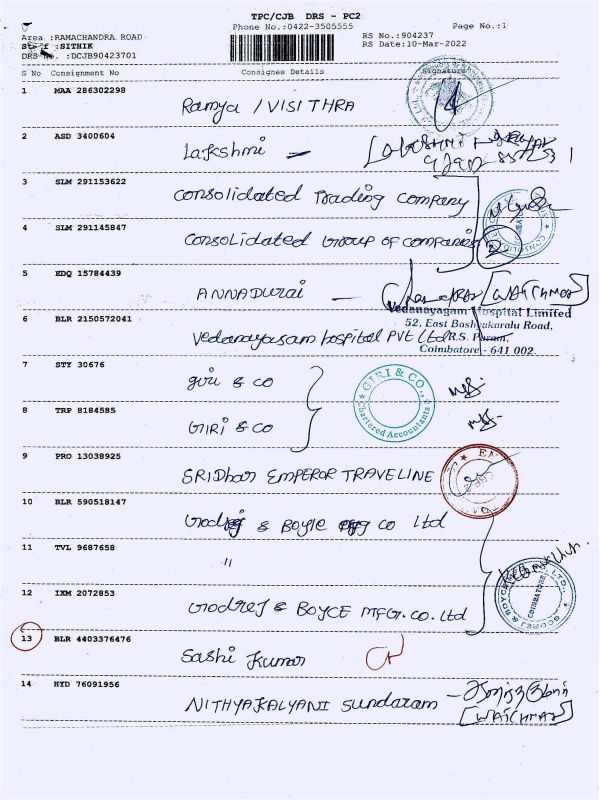 TPC/CJB DRS - PC2
Phone No.:0422-3505555
Page No.:1
Area :RAMACHANDRA ROAD
Staff :SITHIK
DRS No. :DCJB90423701
RS No.:904237
RS Date:10-Mar-2022
S No Consignment No Consignee Details Signature
1 MAA 286302298 Ramya / VISITHRA
2 ASD 3400604 Lakshmi
3 SLM 291153622 Consolidated Trading Company
4 SLM 291145847 Consolidated Group of Companies
5 EDQ 15784439 ANNADURAI [WATCHMAN]
Vedanayagam Hospital Limited
52, East Bashyakaralu Road,
R.S. Puram,
Coimbatore - 641 002.
6 BLR 2150572041 Vedanayagam hospital PVT Ltd
7 STY 30676 giri & co
GIRI & CO.,
Chartered Accountants
8 TRP 8184585 GIRI & CO
9 PRO 13038925 SRIDhar EMPEROR TRAVELINE
10 BLR 590518147 Godrej & Boyce mfg co Ltd
11 TVL 9687658 "
12 IXM 2072853 Godrej & BOYCE MFG.CO.Ltd
GODREJ & BOYCE
COIMBATORE
13 BLR 4403376476 Sashi Kumar
14 HYD 76091956 NITHYAKALYANI Sundaram
[WATCHMAN]